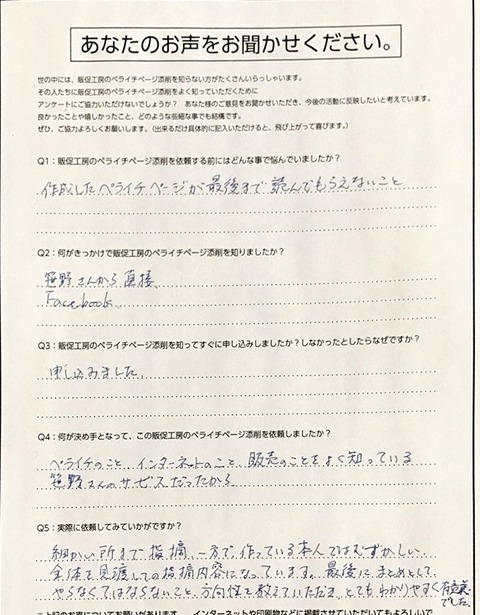 あなたのお声をお聞かせください。
世の中には、販促工房のペライチページ添削を知らない方がたくさんいらっしゃいます。
その人たちに販促工房のペライチページ添削をよく知っていただくために
アンケートにご協力いただけないでしょうか？　あなた様のご意見をお聞かせいただき、今後の活動に反映したいと考えています。
良かったことや嬉しかったこと、どのような些細な事でも結構です。
ぜひ、ご協力よろしくお願いします。（出来るだけ具体的に記入いただけると、飛び上がって喜びます。）
Q1：販促工房のペライチページ添削を依頼する前にはどんな事で悩んでいましたか？
作成したペライチページが最後まで読んでもらえないこと
Q2：何がきっかけで販促工房のペライチページ添削を知りましたか？
笹野さんから直接
Facebook
Q3：販促工房のペライチページ添削を知ってすぐに申し込みしましたか？しなかったとしたらなぜですか？
申し込みました。
Q4：何が決め手となって、この販促工房のペライチページ添削を依頼しましたか？
ペライチのこと、インターネットのこと、販売のことをよく知っている
笹野さんのサービスだったから
Q5：実際に依頼してみていかがですか？
細かい所まで指摘、一方で作っている本人ではむずかしい
全体を見渡しての指摘内容になっています。最後にまとめとして、
やらなくてはならないこと、方向性を教えていただき、とてもわかりやすく有意義
でした。
上記のお声についてお願いがあります。　インターネットや印刷物などに掲載させていただいてもよろしいで